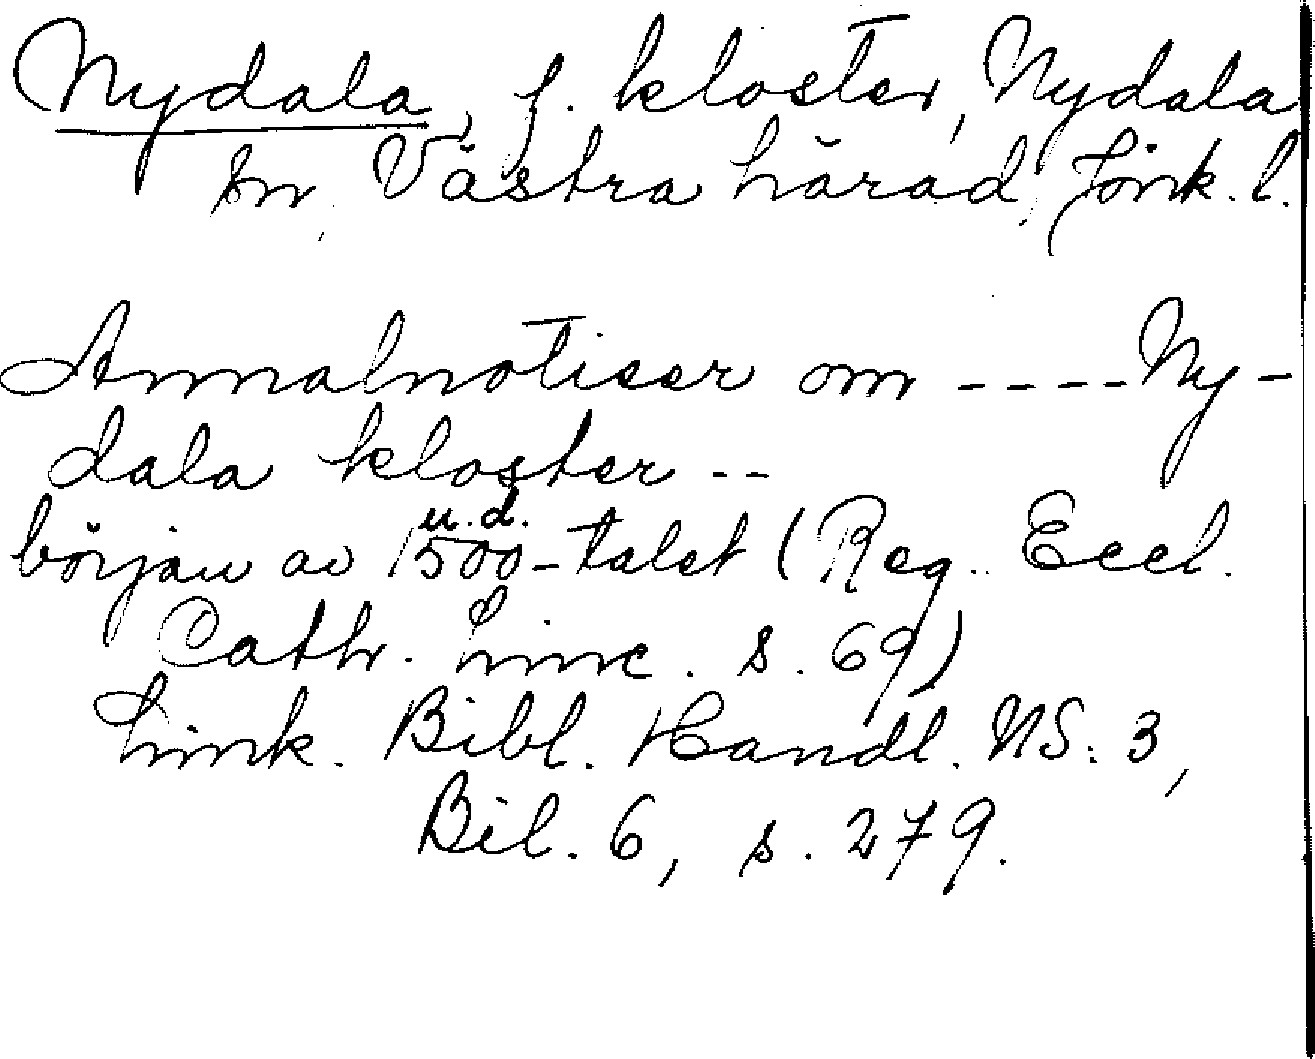 Nydala, f. kloster, Nydala
sn, Västra härad, Jönk. l.
Annalnotiser om ---- Ny-
dala kloster --
u.d.
början av 1500-talet (Reg. Eccl.
Cath. Linc. s. 69)
Link. Bibl. Handl. NS: 3,
Bil. 6, s. 279.